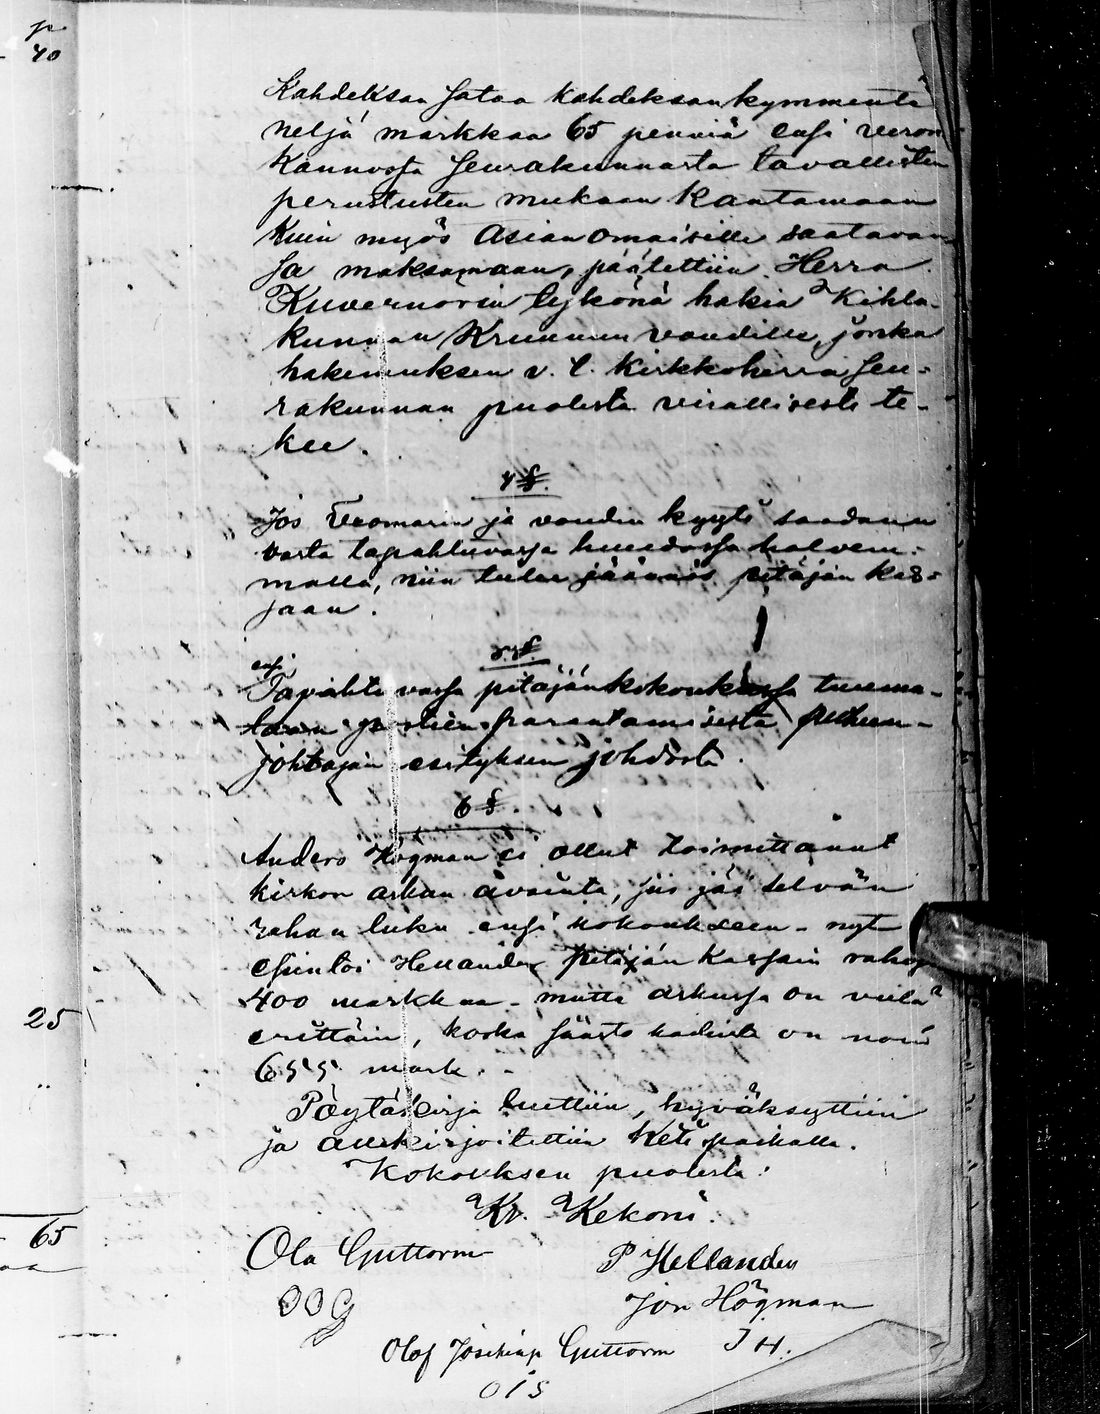 p
40
Kahdeksan sataa kahdeksankymmentä
neljä markkaa 65 penniä ensi veron
kannossa seurakunnasta tavallisten
perustusten mukaan kantamaan
kuin myös asianomaisille saatavansa
ja maksamaan, päätettiin Herra
Kuvernörin tykönä hakia Kihla-
kunnan Kruunun voudille, jonka
hakemuksen v. t. kirkkoherra seu-
rakunnan puolesta virallisesti te-
kee.
4 §.
Jos Veromarin ja voudin kyyti saadaan
vasta tapahtuvassa huudossa halvem-
malla, niin tulee jäännös pitäjän kas-
saan.
5 §.
ensi
Tapahtuvassa pitäjänkokouksessa tuuma-
taan parantamisesta puheen-
johtajan esityksen johdosta.
6 §.
Anders Högman ei ollut toimittanut
kirkon arkan avainta, siis jäi selvän
rahan luku ensi kokoukseen - nyt
esiintoi Hellander pitäjän kassan rahoja
400 markkaa - mutta arkussa on vielä
erittäin, koska säästö kaikista on noin
655 mark. -
Pöytäkirja luettiin, hyväksyttiin
ja allekirjoitettiin paikalla.
Kokouksen puolesta:
Kr. Kekoni.
Ola Guttorm
P Hellander
OOG
Jon Högman
Olof Guttorm
J H.
O I S
25
65